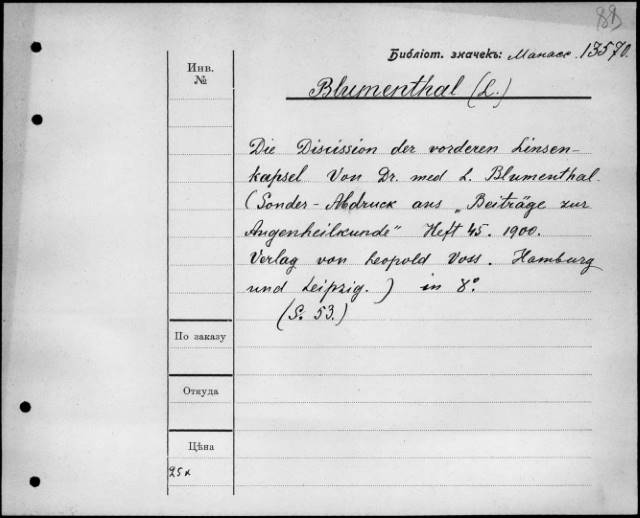 Библіот. значекъ: Манасе. 13570.
Инв.
№
Blumenthal (L.)
Die Discission der vorderen Linsen-
kapsel Von Dr. med L. Blumenthal.
(Sonder-Abdruck aus „Beiträge zur
Augenheilkunde" Heft 45. 1900.
Verlag von Leopold Voss. Hamburg
und Leipzig.) in 8°
(S. 53.)
По заказу
Откуда
Цѣна
25к